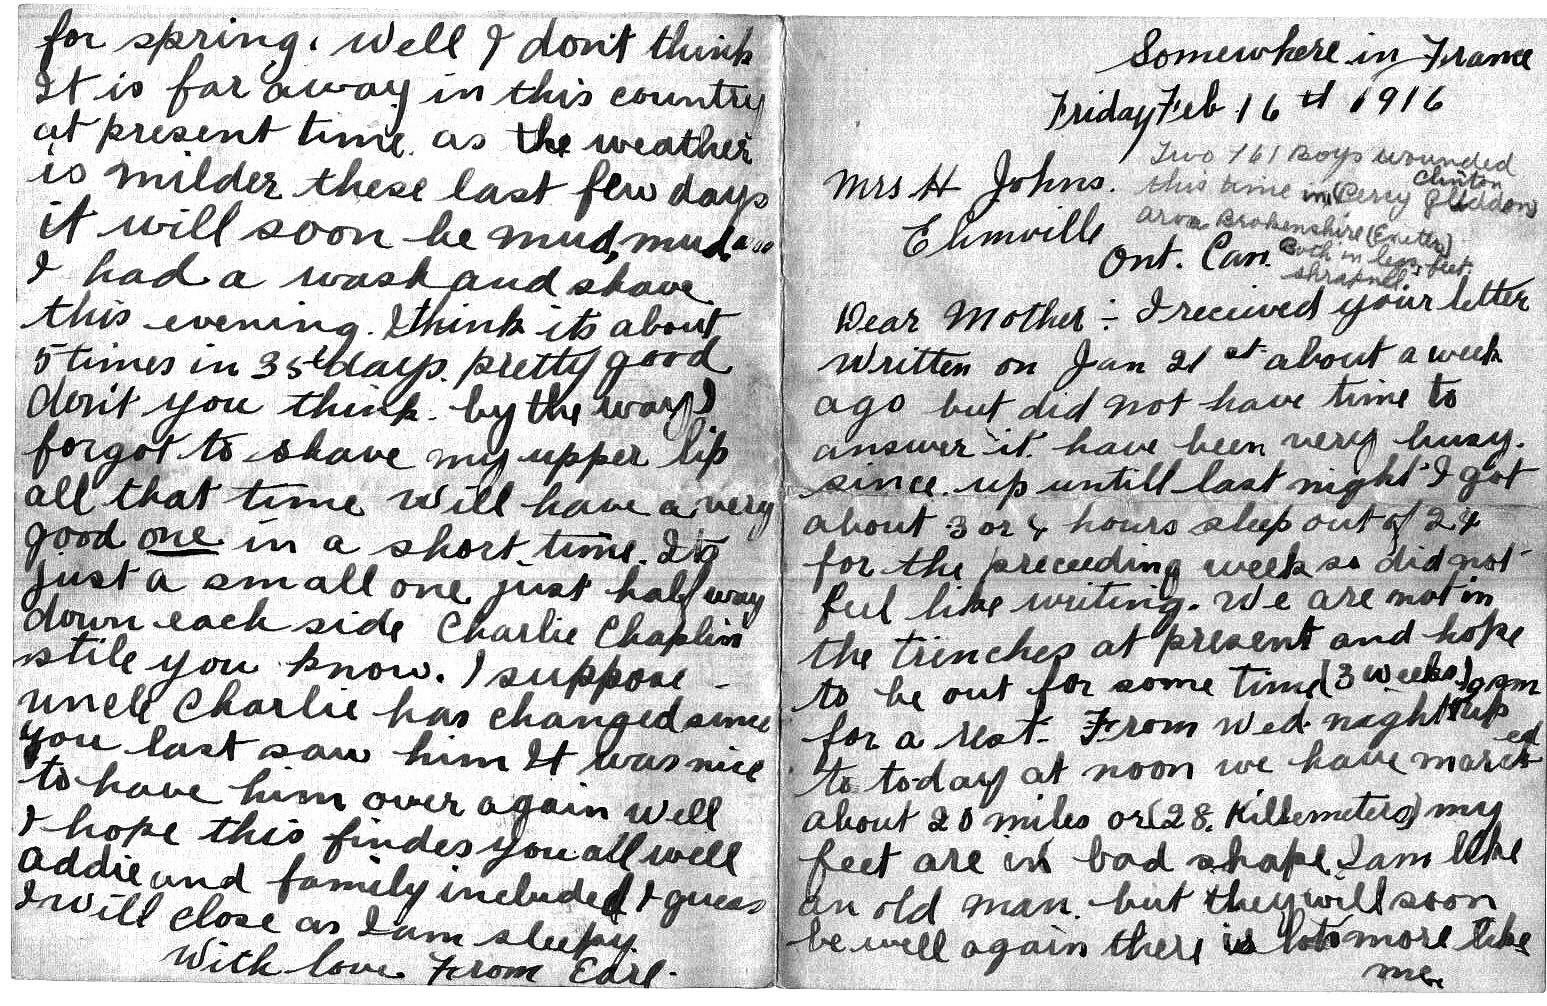 Somewhere in France
Friday Feb 16th 1916
Mrs H Johns.
Elimville
Ont. Can.
Two 161 Boys wounded
this time in (Percy Gliddon
Clinton
Arva Brokenshire (Exeter)
Both in legs, feet.
shrapnel.
Dear Mother :- I received your letter
written on Jan 21st about a week
ago but did not have time to
answer it. have been very busy.
since. up untill last night I got
about 3 or 4 hours sleep out of 24
for the preceeding week so did not
feel like writing. We are not in
the trenches at present and hope
to be out for some time (3 weeks)
for a rest. From Wed. night 8 pm
up to to-day at noon we have marched
about 20 miles or (28. Killemeters) my
feet are in bad shape. I am like
an old man. but they will soon
be well again there is lots more like
me.
for spring. Well I don't think
It is far away in this country
at present time. as the weather
is milder these last few days
it will soon be mud, mud
I had a wash and shave
this evening. I think its about
5 times in 35 days. pretty good
don't you think. by the way I
forgot to shave my upper lip
all that time will have a very
good one in a short time. Its
just a small one just half way
down each side Charlie Chaplin
stile you know. I suppose
uncle Charlie has changed since
you last saw him It was nice
to have him over again Well
I hope this findes you all well
addie and family included I guess
I will close as I am sleepy.
With love From Earl.